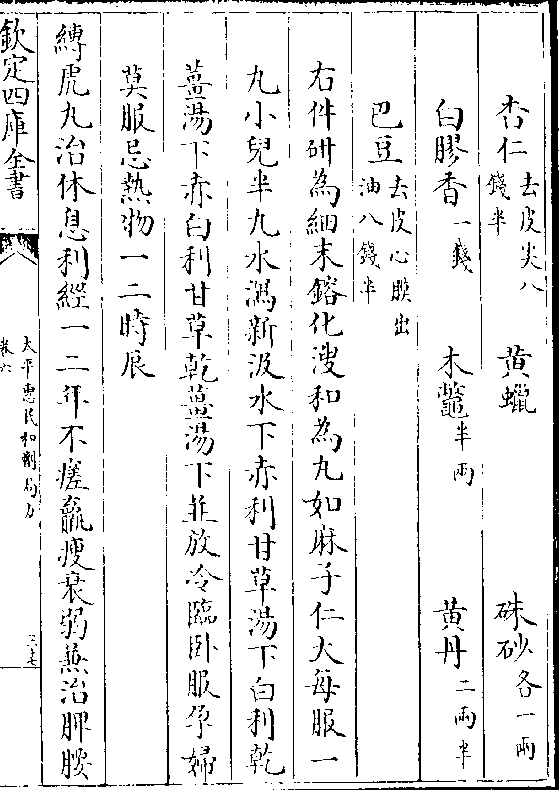 杏仁去皮尖八錢半　黄蠟　硃砂各一兩
白膠香一錢　木鼈半兩　黄丹二兩半
巴豆去皮心膜出油八錢半
右件研為細末鎔化溲和為丸如麻子仁大每服一
丸小兒半丸水瀉新汲水下赤利甘草湯下白利乾
薑湯下赤白利甘草乾薑湯下並放冷臨卧服孕婦
莫服忌熱物一二時辰
縛虎丸治休息利經一二年不瘥羸瘦衰弱兼治脾胺
欽定四庫全書
太平惠民和劑局方
卷六
三七